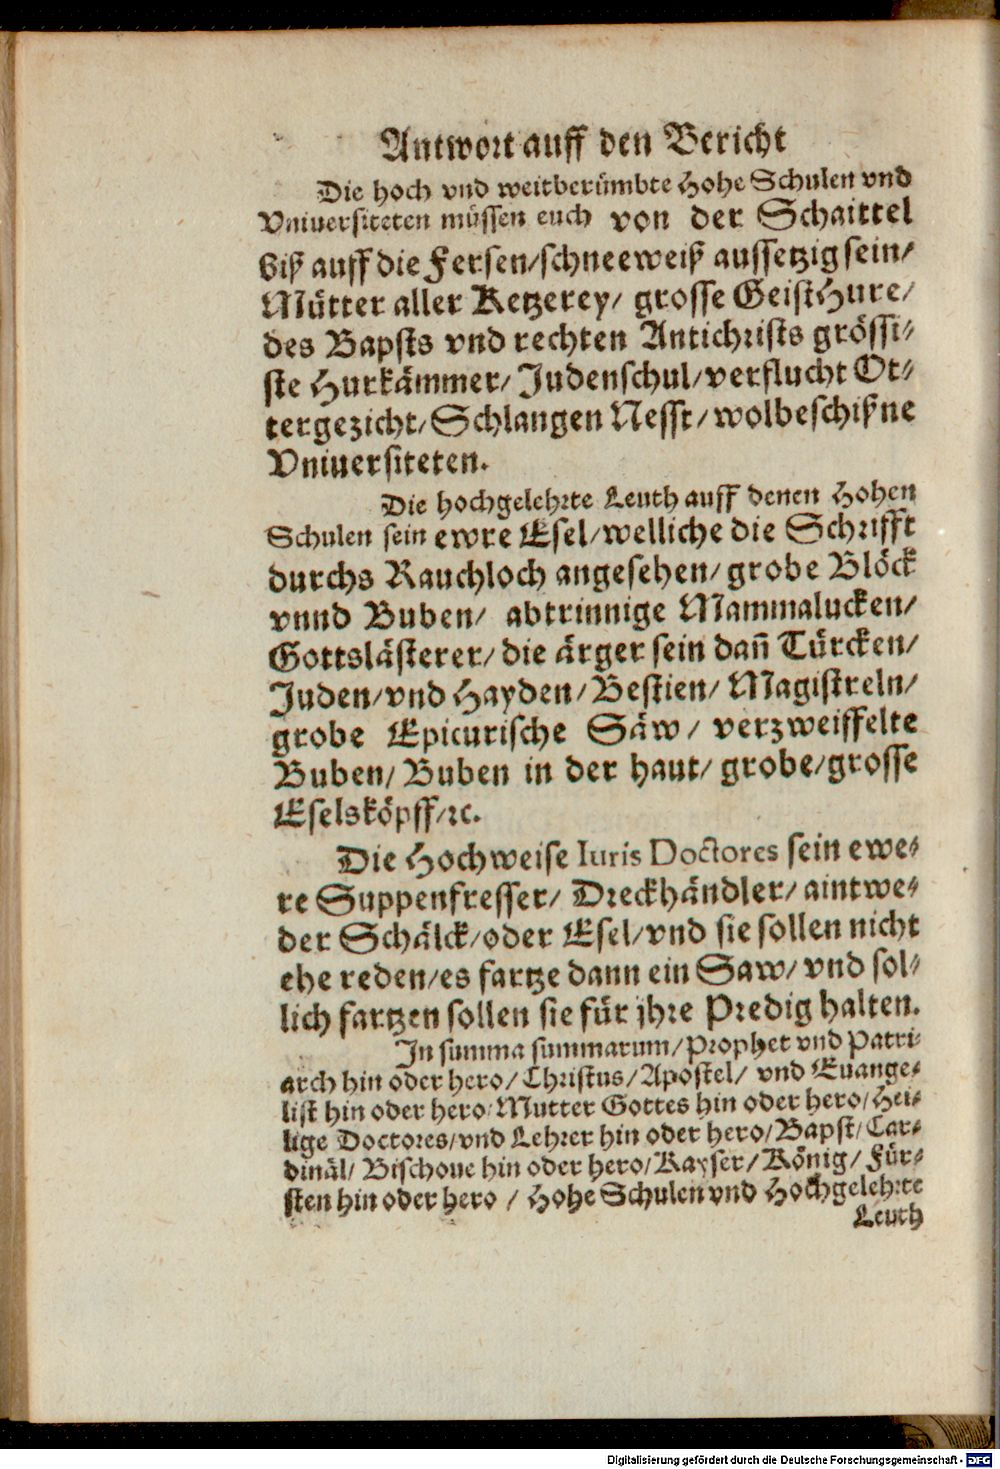 Antwort auff den Bericht
Die hoch vnd weitberümbte Hohe Schulen vnd
Vniuersiteten müssen euch von der Schaittel
biß auff die Fersen/schneeweiß aussetzig sein/
Mütter aller Ketzerey/ grosse GeistHure/
des Bapsts vnd rechten Antichrists grössi⸗
ste Hurkämmer/ Judenschul/verflucht Ot⸗
tergezicht/ Schlangen Nesst/ wolbeschißne
Vniuersiteten.
Die hochgelehrte Leuth auff denen Hohen
Schulen sein ewre Esel/welliche die Schrifft
durchs Rauchloch angesehen/ grobe Blöck
vnnd Buben/ abtrinnige Mammalucken/
Gottslästerer/ die ärger sein dañ Türcken/
Juden/vnd Hayden/Bestien/ Magistreln/
grobe Epicurische Säw/ verzweiffelte
Buben/ Buben in der haut/ grobe/grosse
Eselsköpff/ꝛc.
Die Hochweise Iuris Doctores sein ewe⸗
re Suppenfresser/ Dreckhändler/ aintwe⸗
der Schälck/oder Esel/vnd sie sollen nicht
ehe reden/es fartze dann ein Saw/ vnd sol⸗
lich fartzen sollen sie für jhre Predig halten.
In summa summarum/Prophet vnd Patri⸗
arch hin oder hero/Christus/Apostel/ vnd Euange⸗
list hin oder hero/Mutter Gottes hin oder hero/Hei⸗
lige Doctores/vnd Lehrer hin oder hero/Bapst/Car⸗
dinäl/ Bischoue hin oder hero/Kayser/König/ Für⸗
sten hin oder hero / Hohe Schulen vnd Hochgelehrte
Leuth
Digitalisierung gefördert durch die Deutsche Forschungsgemeinschaft - DFG